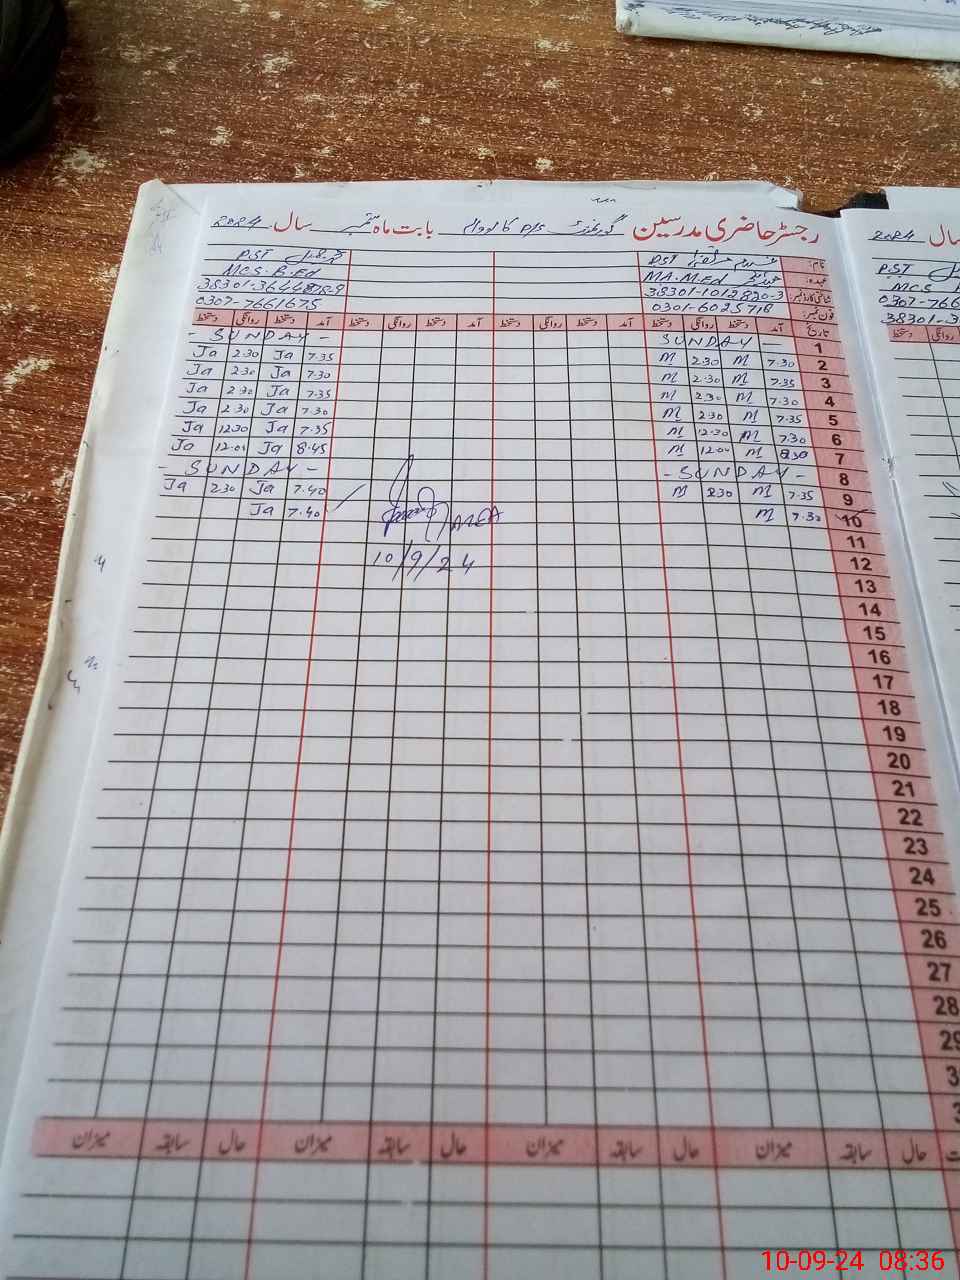 رجسٹر حاضری مدرسین گورنمنٹ P/S بابت ماہ ستمبر سال 2024
نام: PST PST
عہدہ: MA.M.Ed MCS.B.Ed
شناختی کارڈ نمبر: 38301-1012820-3
فون نمبر: 0301-6025718 0307-7661675
تاریخ آمد دستخط روانگی دستخط آمد دستخط روانگی دستخط آمد دستخط روانگی دستخط آمد دستخط روانگی دستخط
1 SUNDAY - - SUNDAY -
2 7.30 M 2.30 M 7.35 Ja 2.30 Ja
3 7.35 M 2.30 M 7.30 Ja 2.30 Ja
4 7.30 M 2.30 M 7.35 Ja 2.30 Ja
5 7.35 M 2.30 M 7.30 Ja 2.30 Ja
6 7.30 M 12.30 M 7.35 Ja 12.30 Ja
7 8.30 M 12.00 M 8.45 Ja 12.00 Ja
8 - SUNDAY - - SUNDAY -
9 7.35 M 2.30 M 7.40 Ja 2.30 Ja
10 7.30 M 7.40 Ja
AREA
10/9/24
11
12
13
14
15
16
17
18
19
20
21
22
23
24
25
26
27
28
29
حال سابقہ میزان حال سابقہ میزان حال سابقہ میزان حال سابقہ میزان
سال 2024
PST
MCS
0307-766
38301-3
روانگی دستخط
10-09-24 08:36